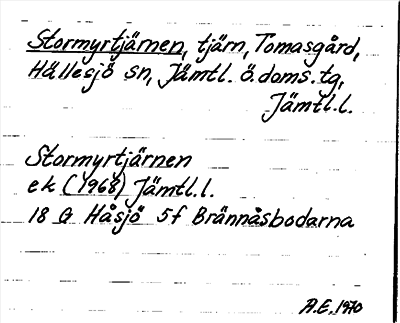 Stormyrtjärnen, tjärn, Tomasgård,
Hällesjö sn, Jämtl. ö. doms. tg,
Jämtl.l.
Stormyrtjärnen
ek (1968) Jämtl.l.
18 G Håsjö 5f Brännåsbodarna
A.E. 1970